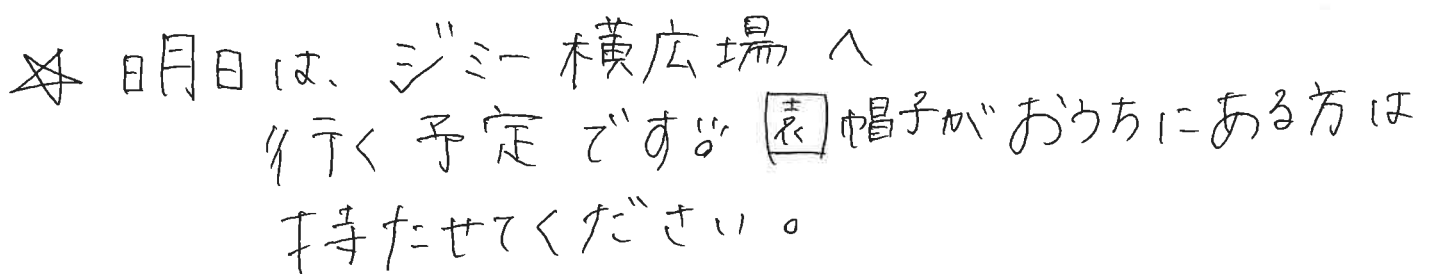 ☆ 明日は、ジミー横広場へ
行く予定です!! 園帽子がおうちにある方は
持たせてください。